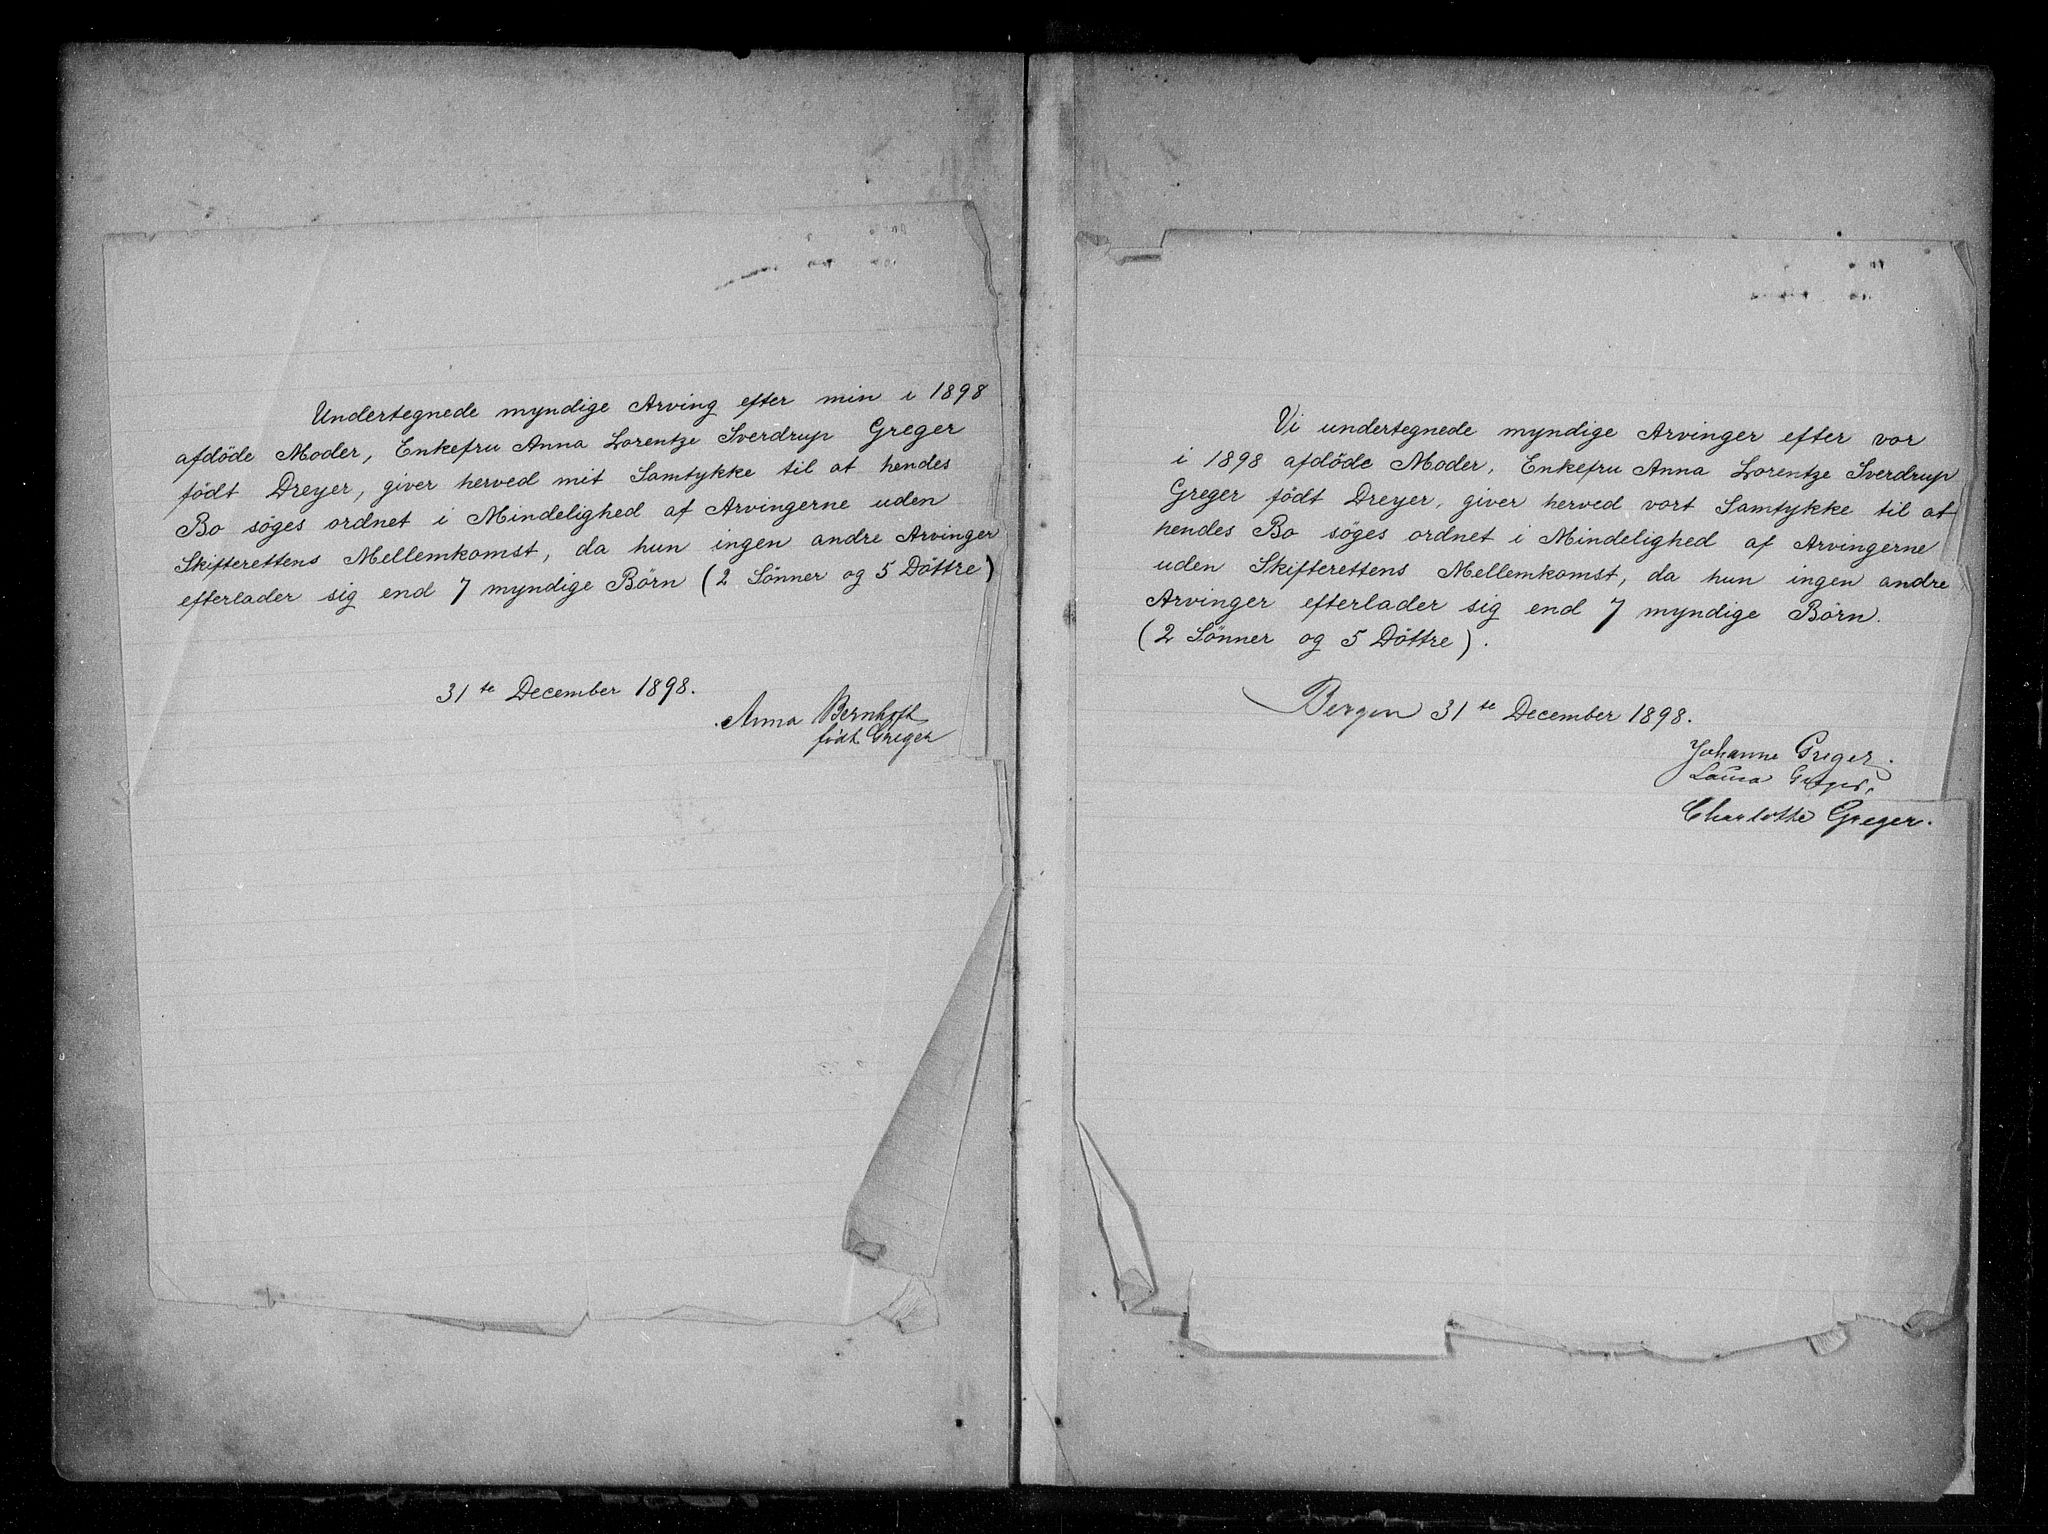 Undertegnede myndige Arving efter min i 1898
afdöde Moder, Enkefru Anna Lorentze Sverdrup Greger
födt Dreyer, giver herved mit Samtykke til at hendes
Bo söges ordnet i Mindelighed af Arvingerne uden
Skifterettens Mellemkomst, da hun ingen andre Arvinger
efterlader sig end 7 myndige Börn (2 Sönner og 5 Döttre)
31te December 1898.
Anna Bernhoft
födt Greger
Vi undertegnede myndige Arvinger efter vor
i 1898 afdöde Moder, Enkefru Anna Lorentze Sverdrup
Greger födt Dreyer, giver herved vort Samtykke til at
hendes Bo söges ordnet i Mindelighed af Arvingerne
uden Skifterettens Mellemkomst, da hun ingen andre
Arvinger efterlader sig end 7 myndige Börn.
(2 Sönner og 5 Döttre).
Bergen 31te December 1898.
Johanne Greger.
Laura Greger.
Charlotte Greger.